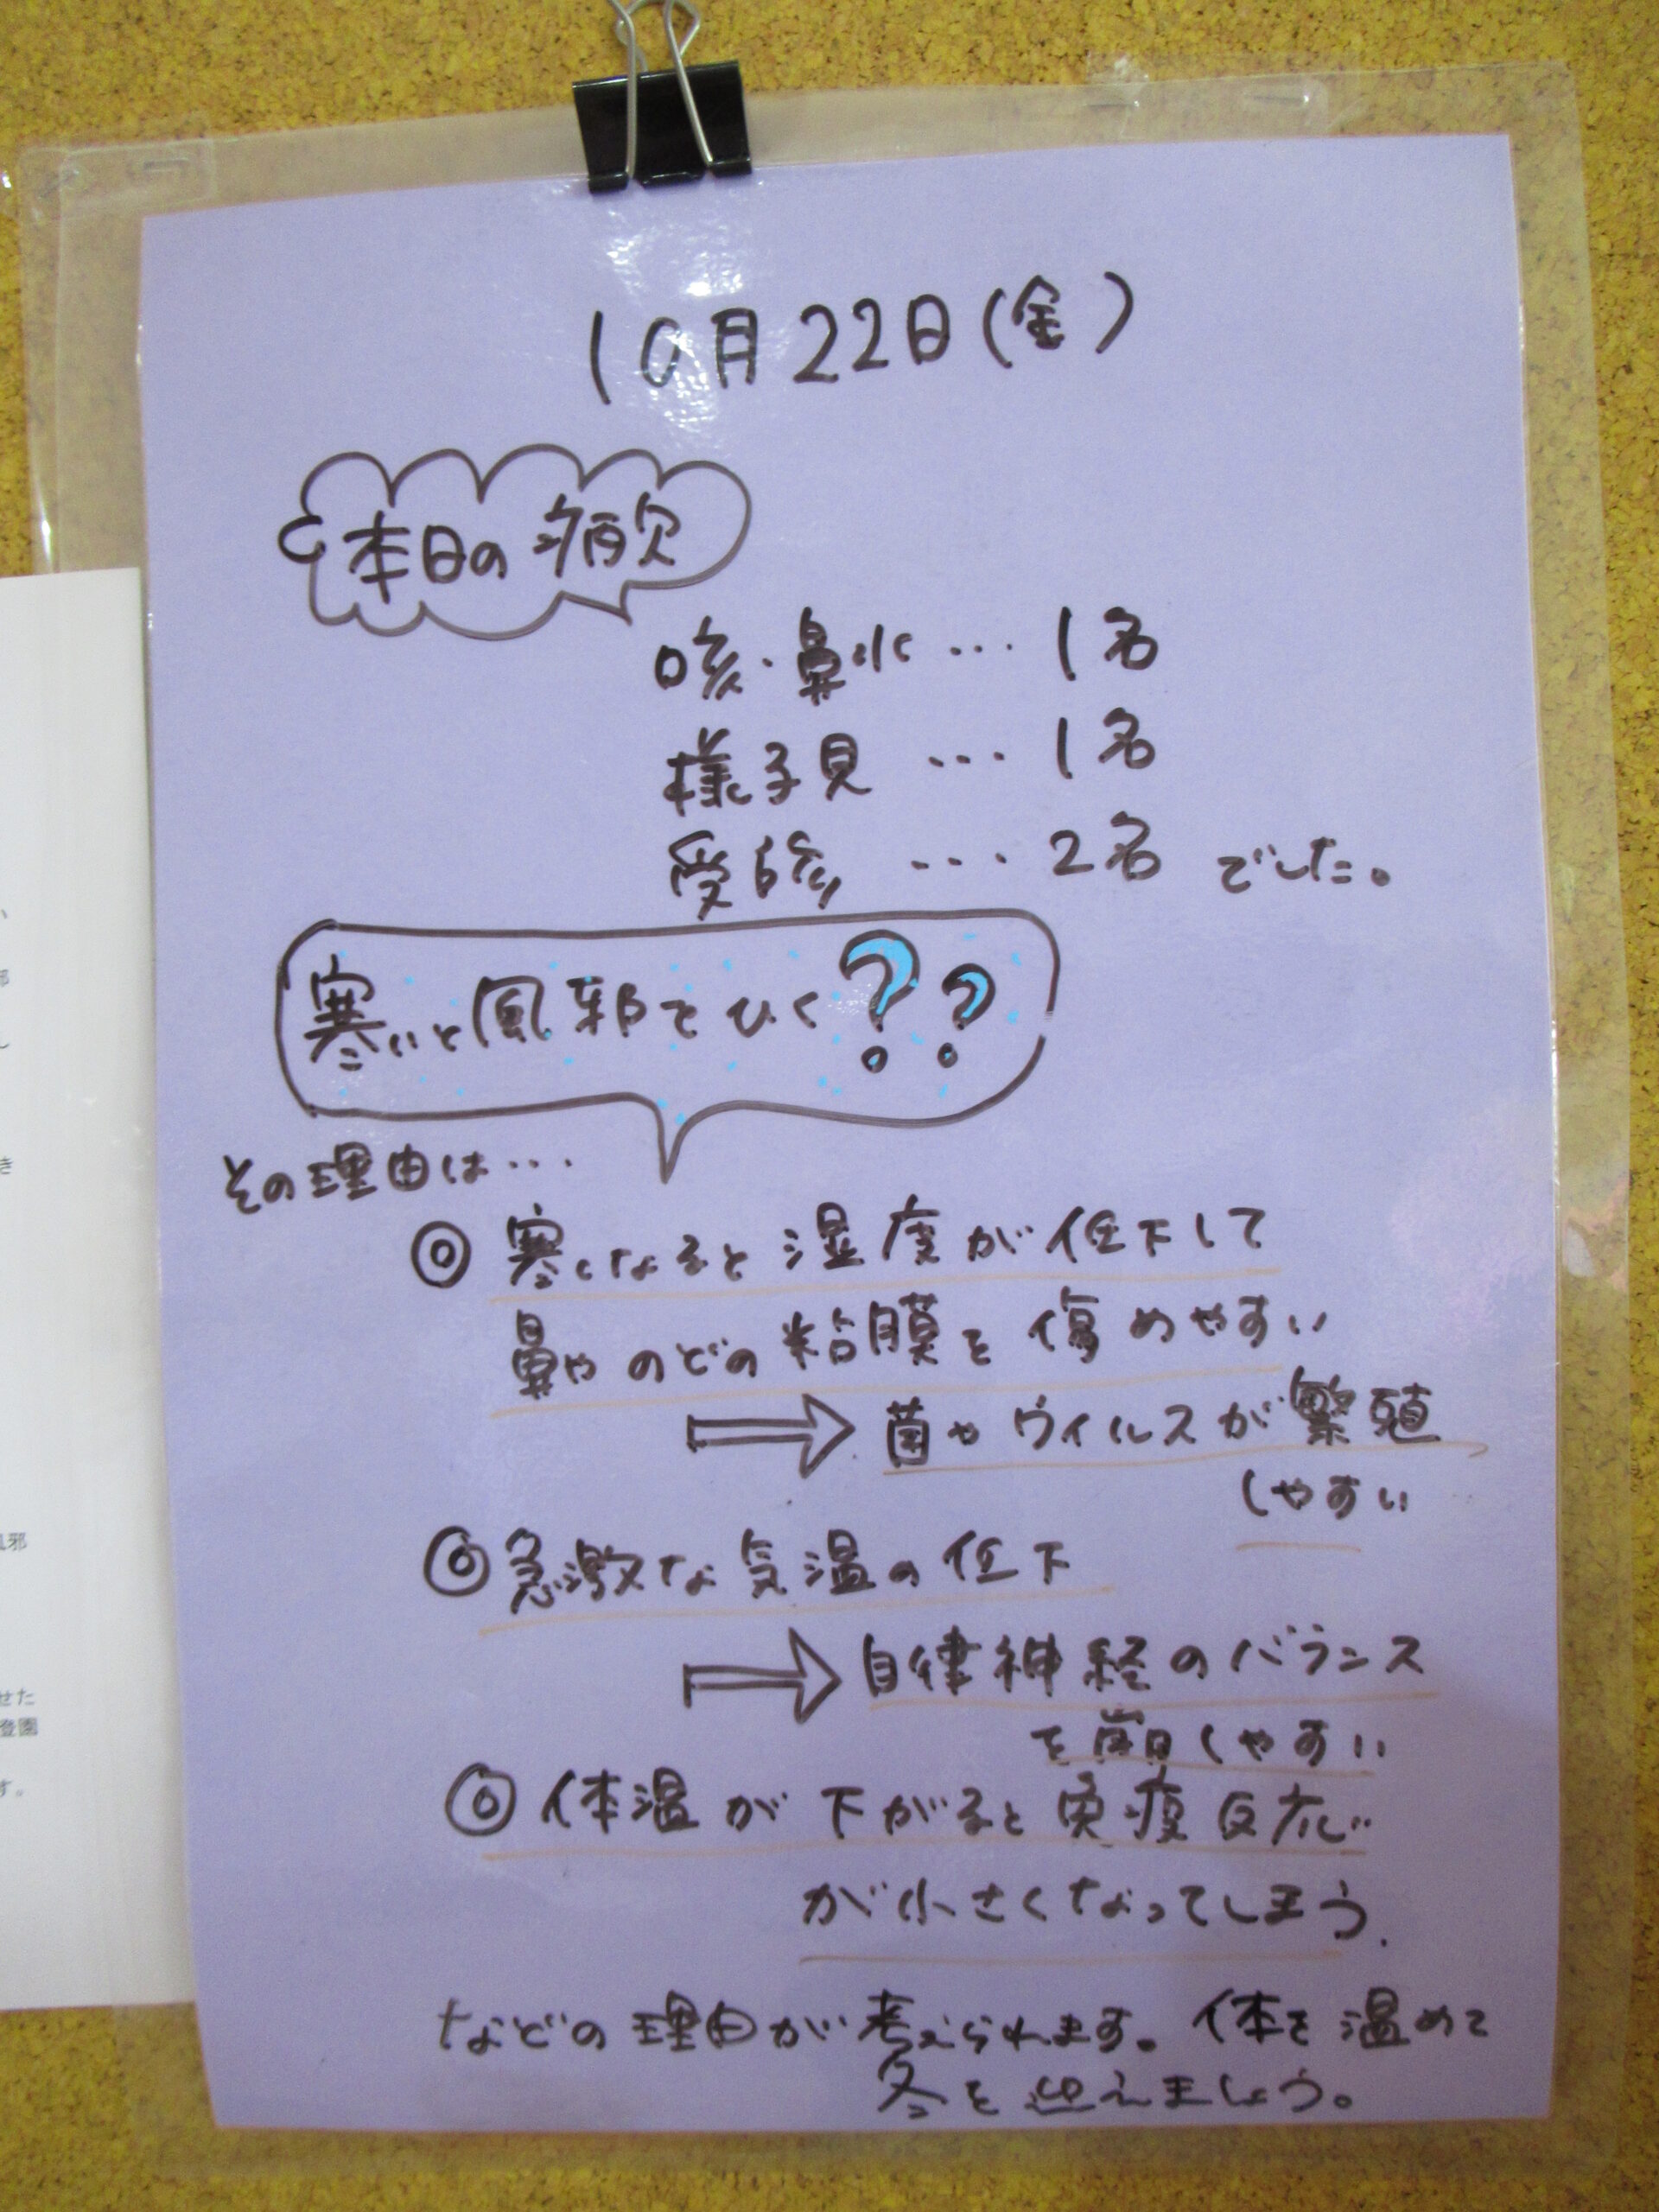 10月22日(金)
本日の病欠
咳・鼻水 … 1名
様子見 … 1名
受診 … 2名 でした。
寒いと風邪をひく??
その理由は…
◎ 寒くなると湿度が低下して
鼻やのどの粘膜を傷めやすい
⇒ 菌やウィルスが繁殖
しやすい
◎ 急激な気温の低下
⇒ 自律神経のバランス
を崩しやすい
◎ 体温が下がると免疫反応
が小さくなってしまう.
などの理由が考えられます。体を温めて
冬を迎えましょう。
邪
し
き
風邪
せた
登園
す。